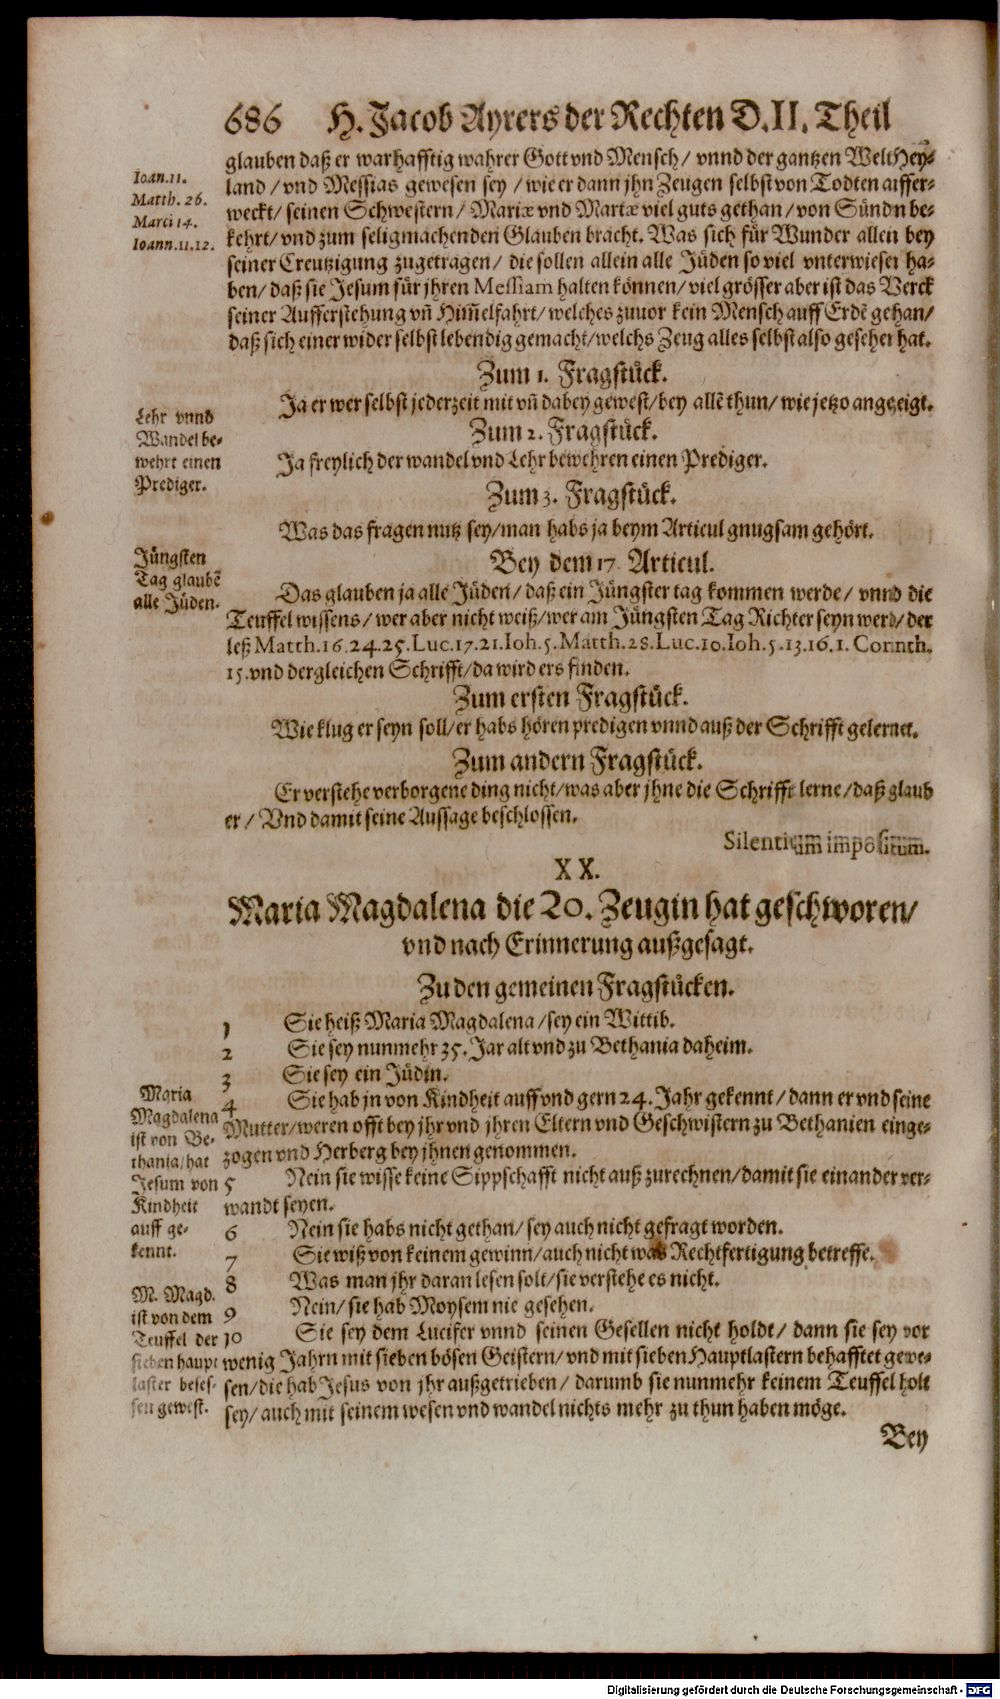 686 H. Jacob Ayrers der Rechten D. II. Theil
glauben daß er warhafftig wahrer Gott vnd Mensch/ vnnd der gantzen Welt Hey-
land/ vnd Messias gewesen sey / wie er dann jhn Zeugen selbst von Todten auffer-
weckt/ seinen Schwestern/ Mariæ vnd Martæ viel guts gethan/ von Sündn be-
kehrt/ vnd zum seligmachenden Glauben bracht. Was sich für Wunder allen bey
seiner Creutzigung zugetragen/ die sollen allein alle Jüden so viel vnterwiesen ha-
ben/ daß sie Jesum für jhren Messiam halten können/ viel grösser aber ist das Werck
seiner Aufferstehung vñ Him̃elfahrt/ welches zuuor kein Mensch auff Erdẽ gehan/
daß sich einer wider selbst lebendig gemacht/ welchs Zeug alles selbst also gesehen hat.
Ioan. 11.
Matth. 26.
Marci 14.
Ioann. 11. 12.
Zum 1. Fragstück.
Ja er wer selbst jederzeit mit vñ dabey gewest/ bey allẽ thun/ wie jetzo angezeigt.
Zum 2. Fragstück.
Ja freylich der wandel vnd Lehr bewehren einen Prediger.
Lehr vnnd
Wandel be-
wehrt einen
Prediger.
Zum 3. Fragstück.
Was das fragen nutz sey/ man habs ja beym Articul gnugsam gehört.
Bey dem 17. Articul.
Das glauben ja alle Jüden/ daß ein Jüngster tag kommen werde/ vnnd die
Teuffel wissens/ wer aber nicht weiß/ wer am Jüngsten Tag Richter seyn werd/ der
leß Matth. 16. 24. 25. Luc. 17. 21. Ioh. 5. Matth. 28. Luc. 10. Ioh. 5. 13. 16. 1. Corinth.
15. vnd dergleichen Schrifft/ da wird ers finden.
Jüngsten
Tag glaubẽ
alle Jüden.
Zum ersten Fragstück.
Wie klug er seyn soll/ er habs hören predigen vnnd auß der Schrifft gelernet.
Zum andern Fragstück.
Er verstehe verborgene ding nicht/ was aber jhne die Schrifft lerne/ daß glaub
er/ Vnd damit seine Aussage beschlossen.
Silentium impositum.
XX.
Maria Magdalena die 20. Zeugin hat geschworen/
vnd nach Erinnerung außgesagt.
Zu den gemeinen Fragstücken.
1 Sie heiß Maria Magdalena/ sey ein Wittib.
2 Sie sey nunmehr 35. Jar alt vnd zu Bethania daheim.
3 Sie sey ein Jüdin.
4 Sie hab jn von Kindheit auff vnd gern 24. Jahr gekennt/ dann er vnd seine
Mutter/ weren offt bey jhr vnd jhren Eltern vnd Geschwistern zu Bethanien einge-
zogen vnd Herberg bey jhnen genommen.
5 Nein sie wisse keine Sippschafft nicht auß zurechnen/ damit sie einander ver-
wandt seyen.
6 Nein sie habs nicht gethan/ sey auch nicht gefragt worden.
7 Sie wiß von keinem gewinn/ auch nicht was Rechtfertigung betreffe.
8 Was man jhr daran lesen solt/ sie verstehe es nicht.
9 Nein/ sie hab Moysem nie gesehen.
10 Sie sey dem Lucifer vnnd seinen Gesellen nicht holdt/ dann sie sey vor
wenig Jahrn mit sieben bösen Geistern/ vnd mit sieben Hauptlastern behafftet gewe-
sen/ die hab Jesus von jhr außgetrieben/ darumb sie nunmehr keinem Teuffel holt
sey/ auch mit seinem wesen vnd wandel nichts mehr zu thun haben möge.
Maria
Magdalena
ist von Be-
thania/ hat
Jesum von
Kindheit
auff ge-
kennt.
M. Magd.
ist von dem
Teuffel der
sieben haupt
laster beses-
sen gewest.
Bey
Digitalisierung gefördert durch die Deutsche Forschungsgemeinschaft - DFG